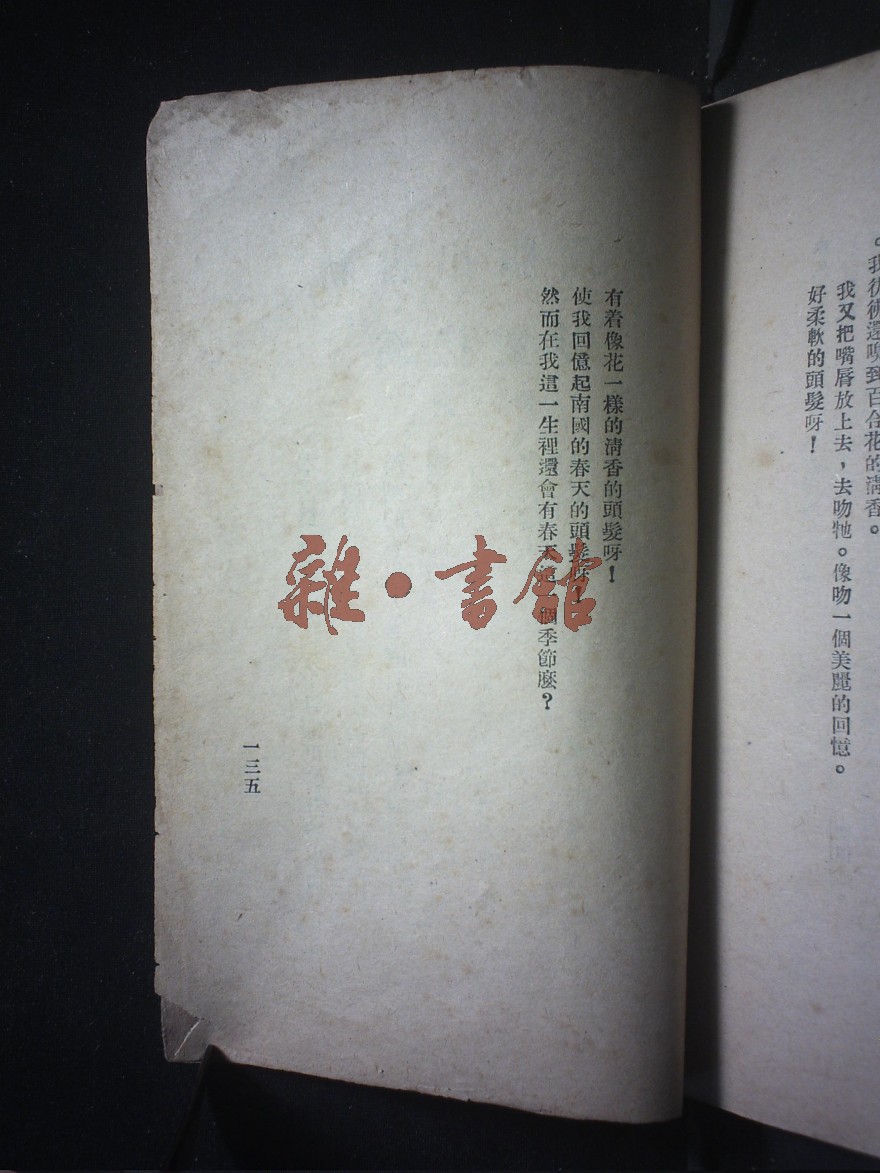 。我彷彿還嗅到百合花的清香。
我又把嘴唇放上去，去吻牠。像吻一個美麗的回憶。
好柔軟的頭髮呀！
有着像花一樣的清香的頭髮呀！
使我回億起南國的春天的頭髮呀！
然而在我這一生裡還會有春天這一個季節麽？
一三五
雜·書館